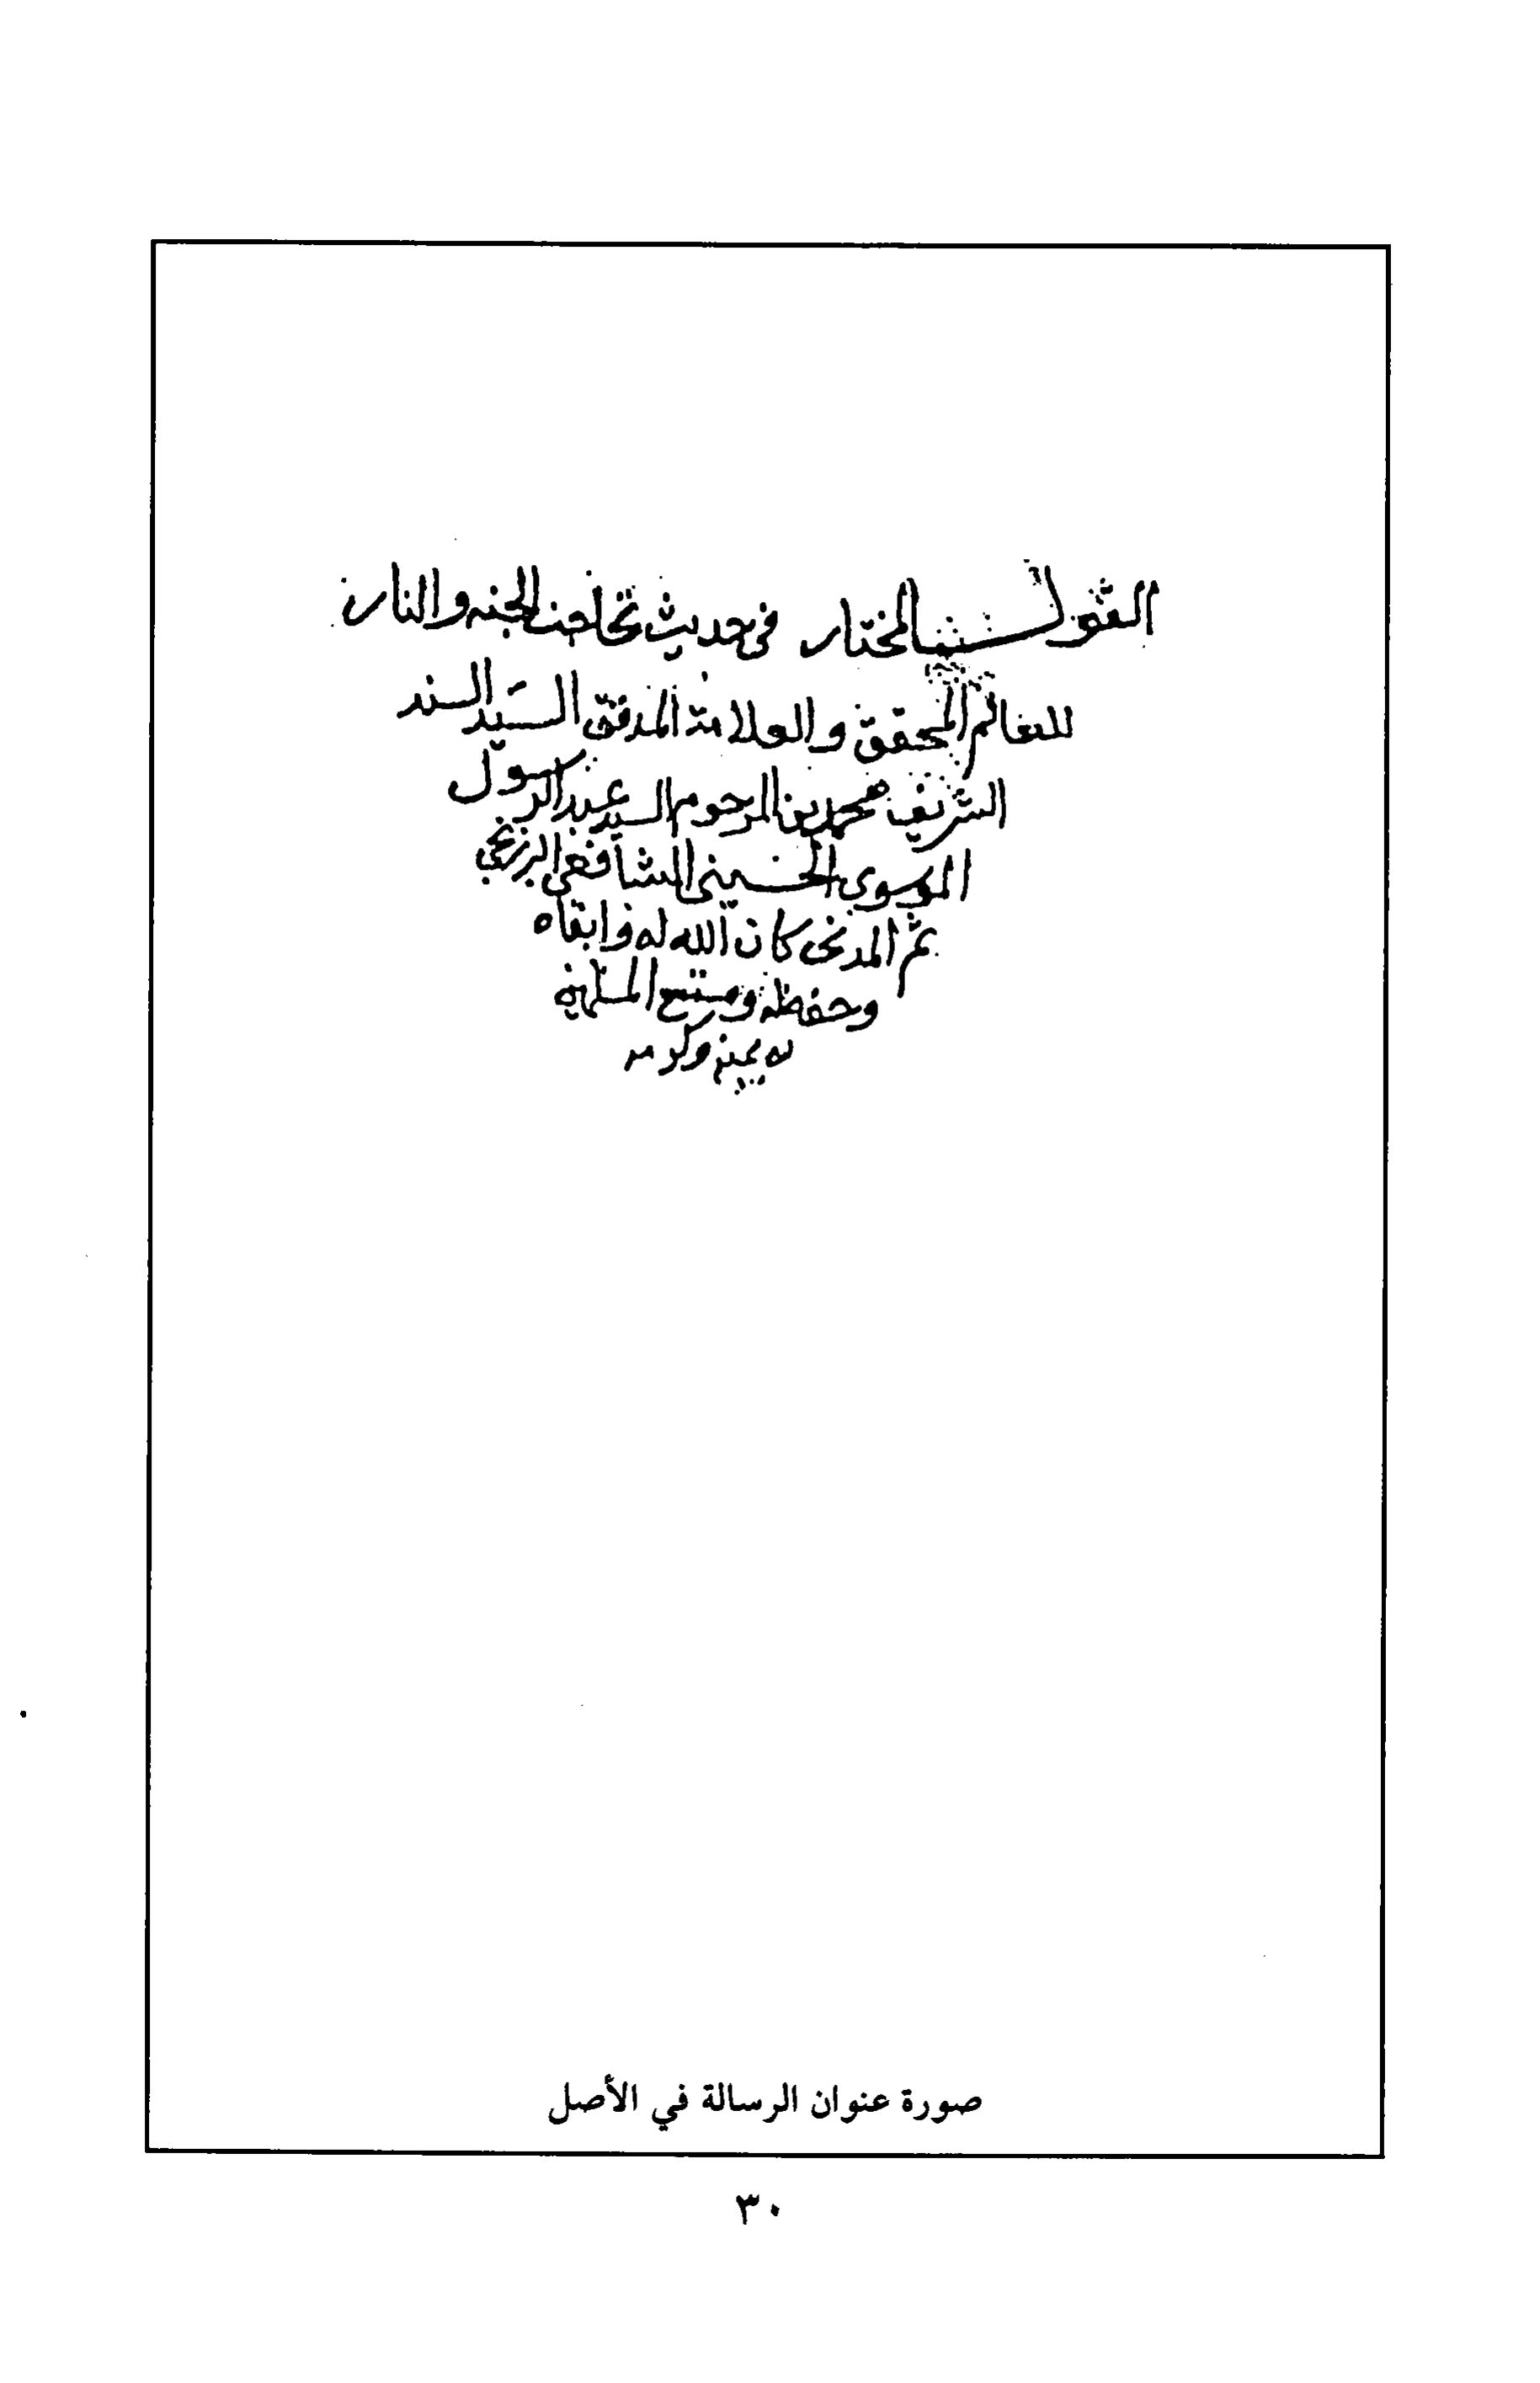 القول المختار في حديث تحاجت الجنه والنار
للعالم المحقق والعلامة المدقق السيد السند
الشريف محمد بن المرحوم السيد عبد الرسول
الموسوى الحسينى الشافعى البرزنجي
ثم المدنى كان الله له وابقاه
وحفظه ومتع المسلمين
به بمنه وكرمه
صورة عنوان الرسالة في الأصل
٣٠